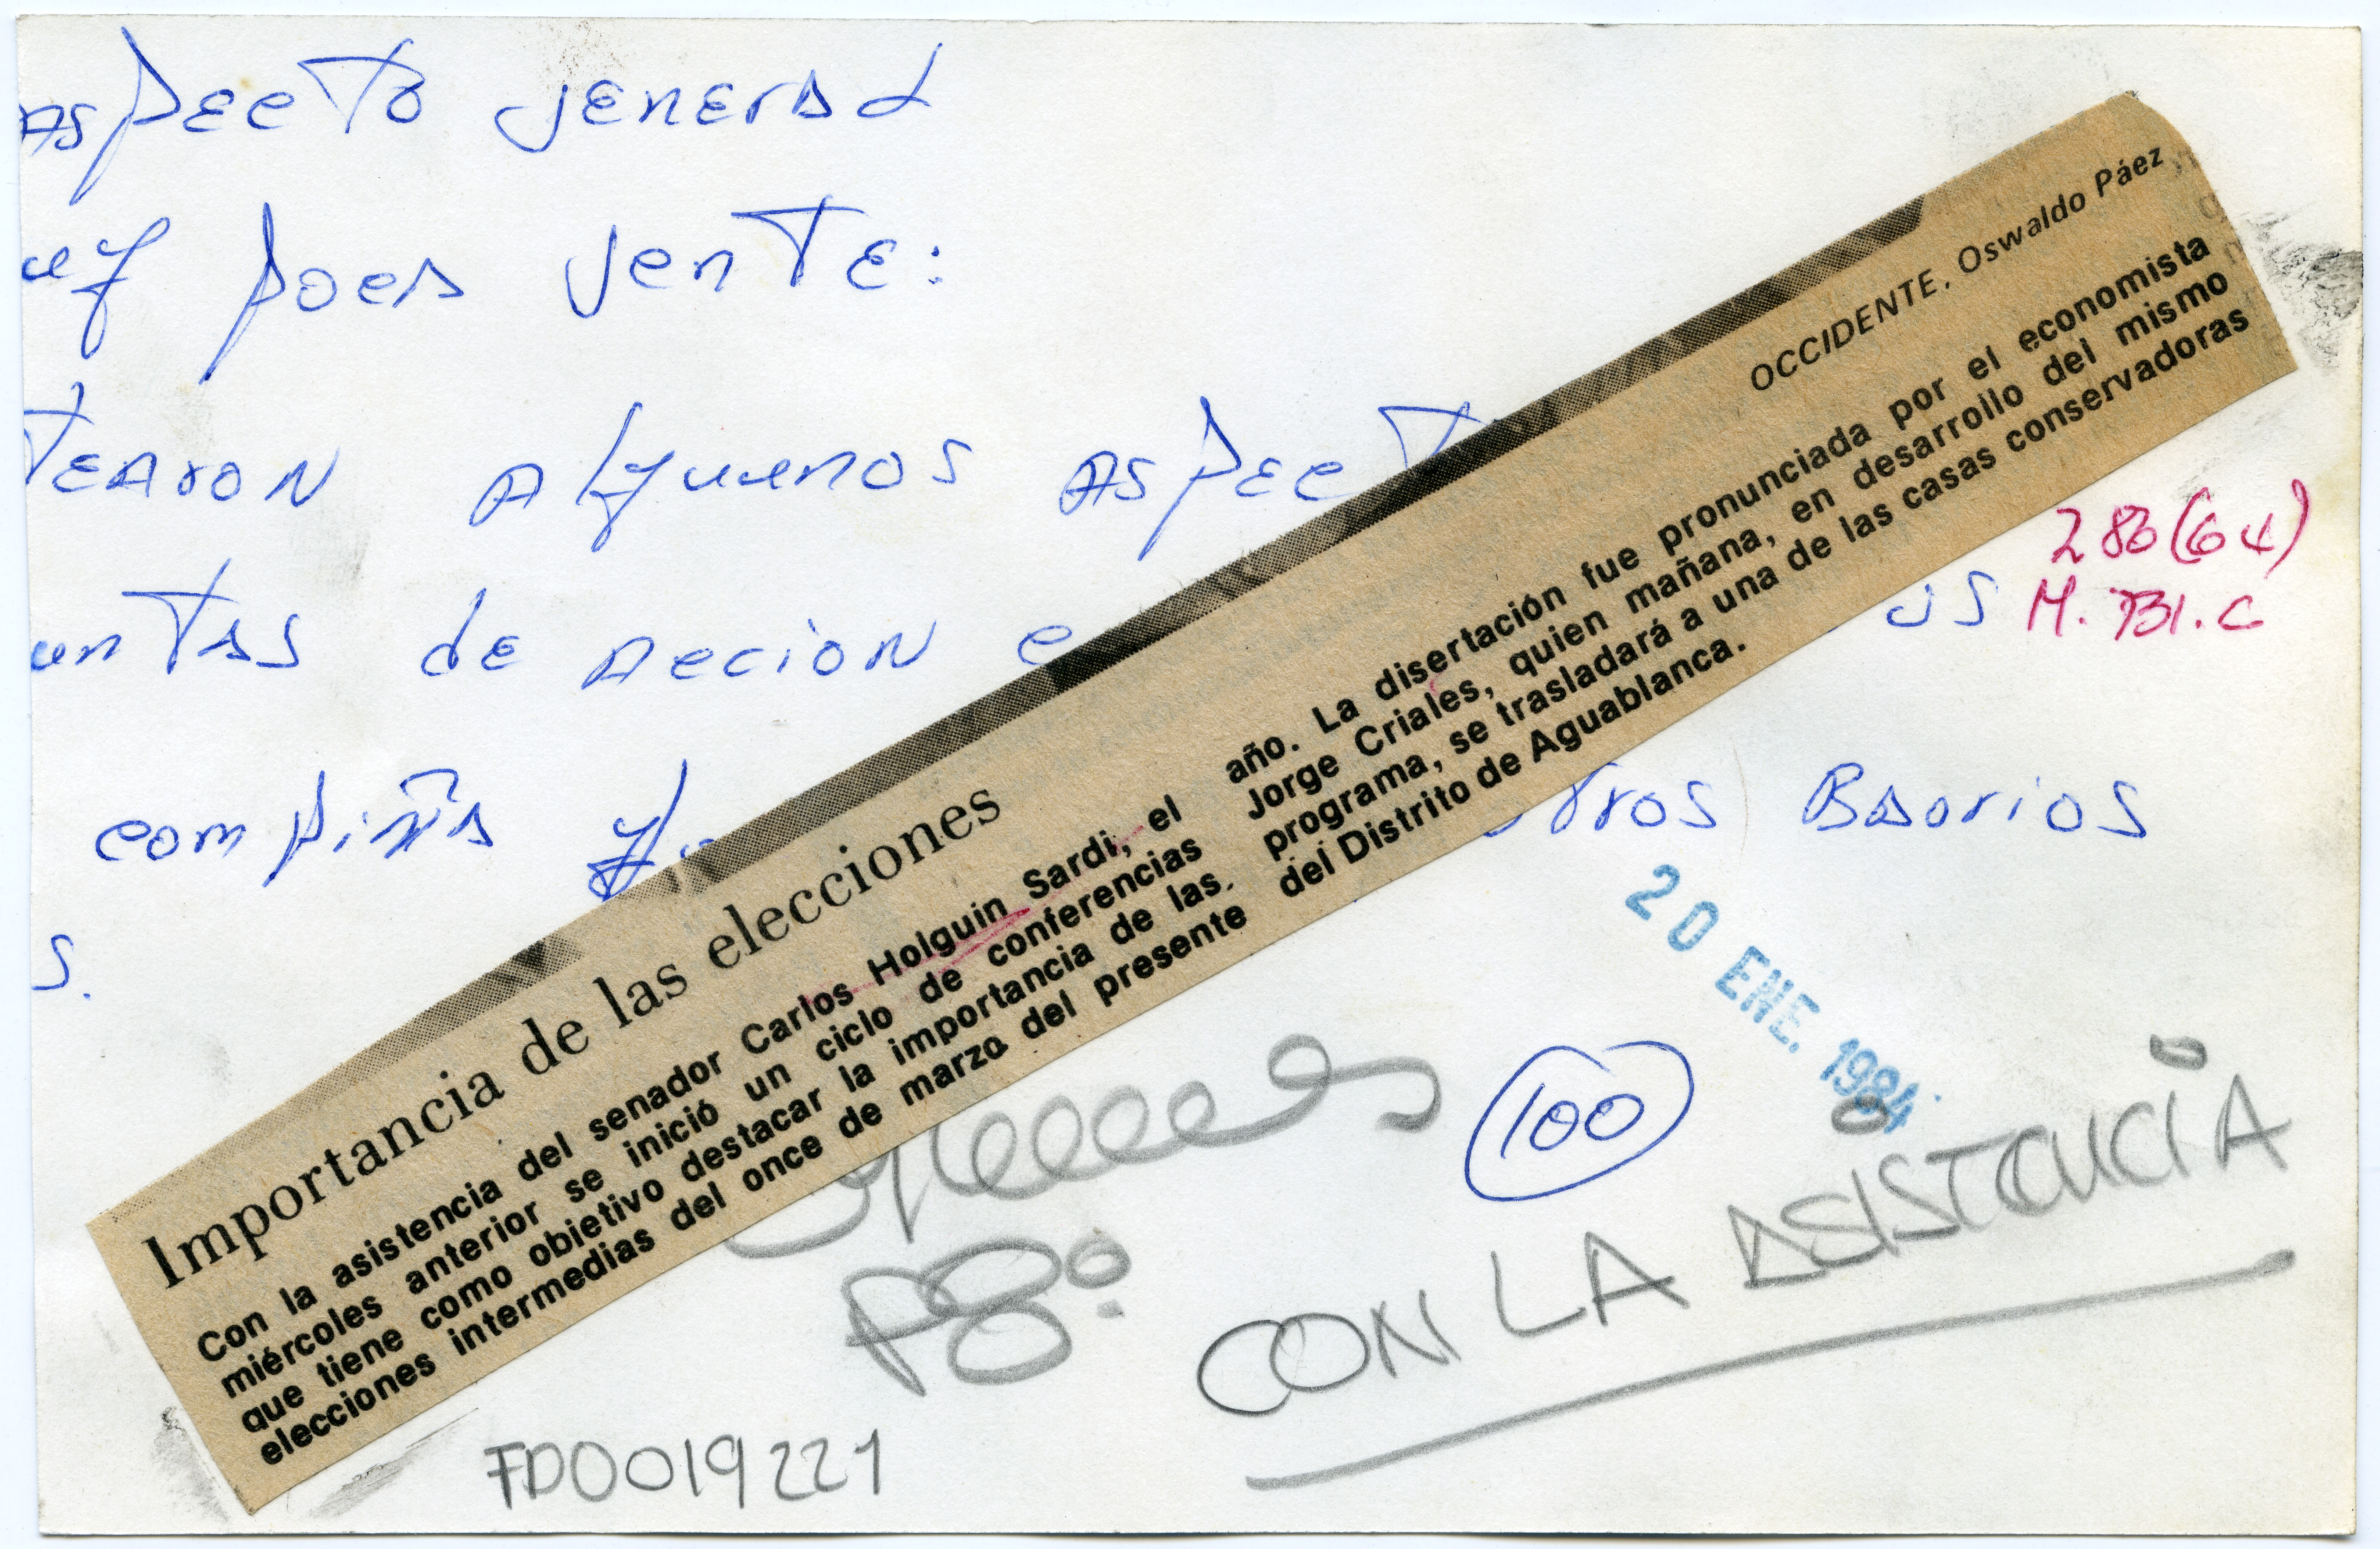 Aspecto jenerad
uy poca jente:
tearon Alguunos Aspect
untas de Accion e
us
compiña y
otros Baorios
s.
OCCIDENTE, Oswaldo Páez
Importancia de las elecciones
Con la asistencia del senador Carlos Holguin Sardi, el
miércoles anterior se inició un ciclo de conferencias
que tiene como objetivo destacar la importancia de las
elecciones intermedias del once de marzo del presente
año. La disertación fue pronunciada por el economista
Jorge Criales, quien mañana, en desarrollo del mismo
programa, se trasladará a una de las casas conservadoras
del Distrito de Aguablanca.
280(64)
M. 731.C
20 ENE. 1984
100
P8º
CON LA ASISTENCIA
FD0019221